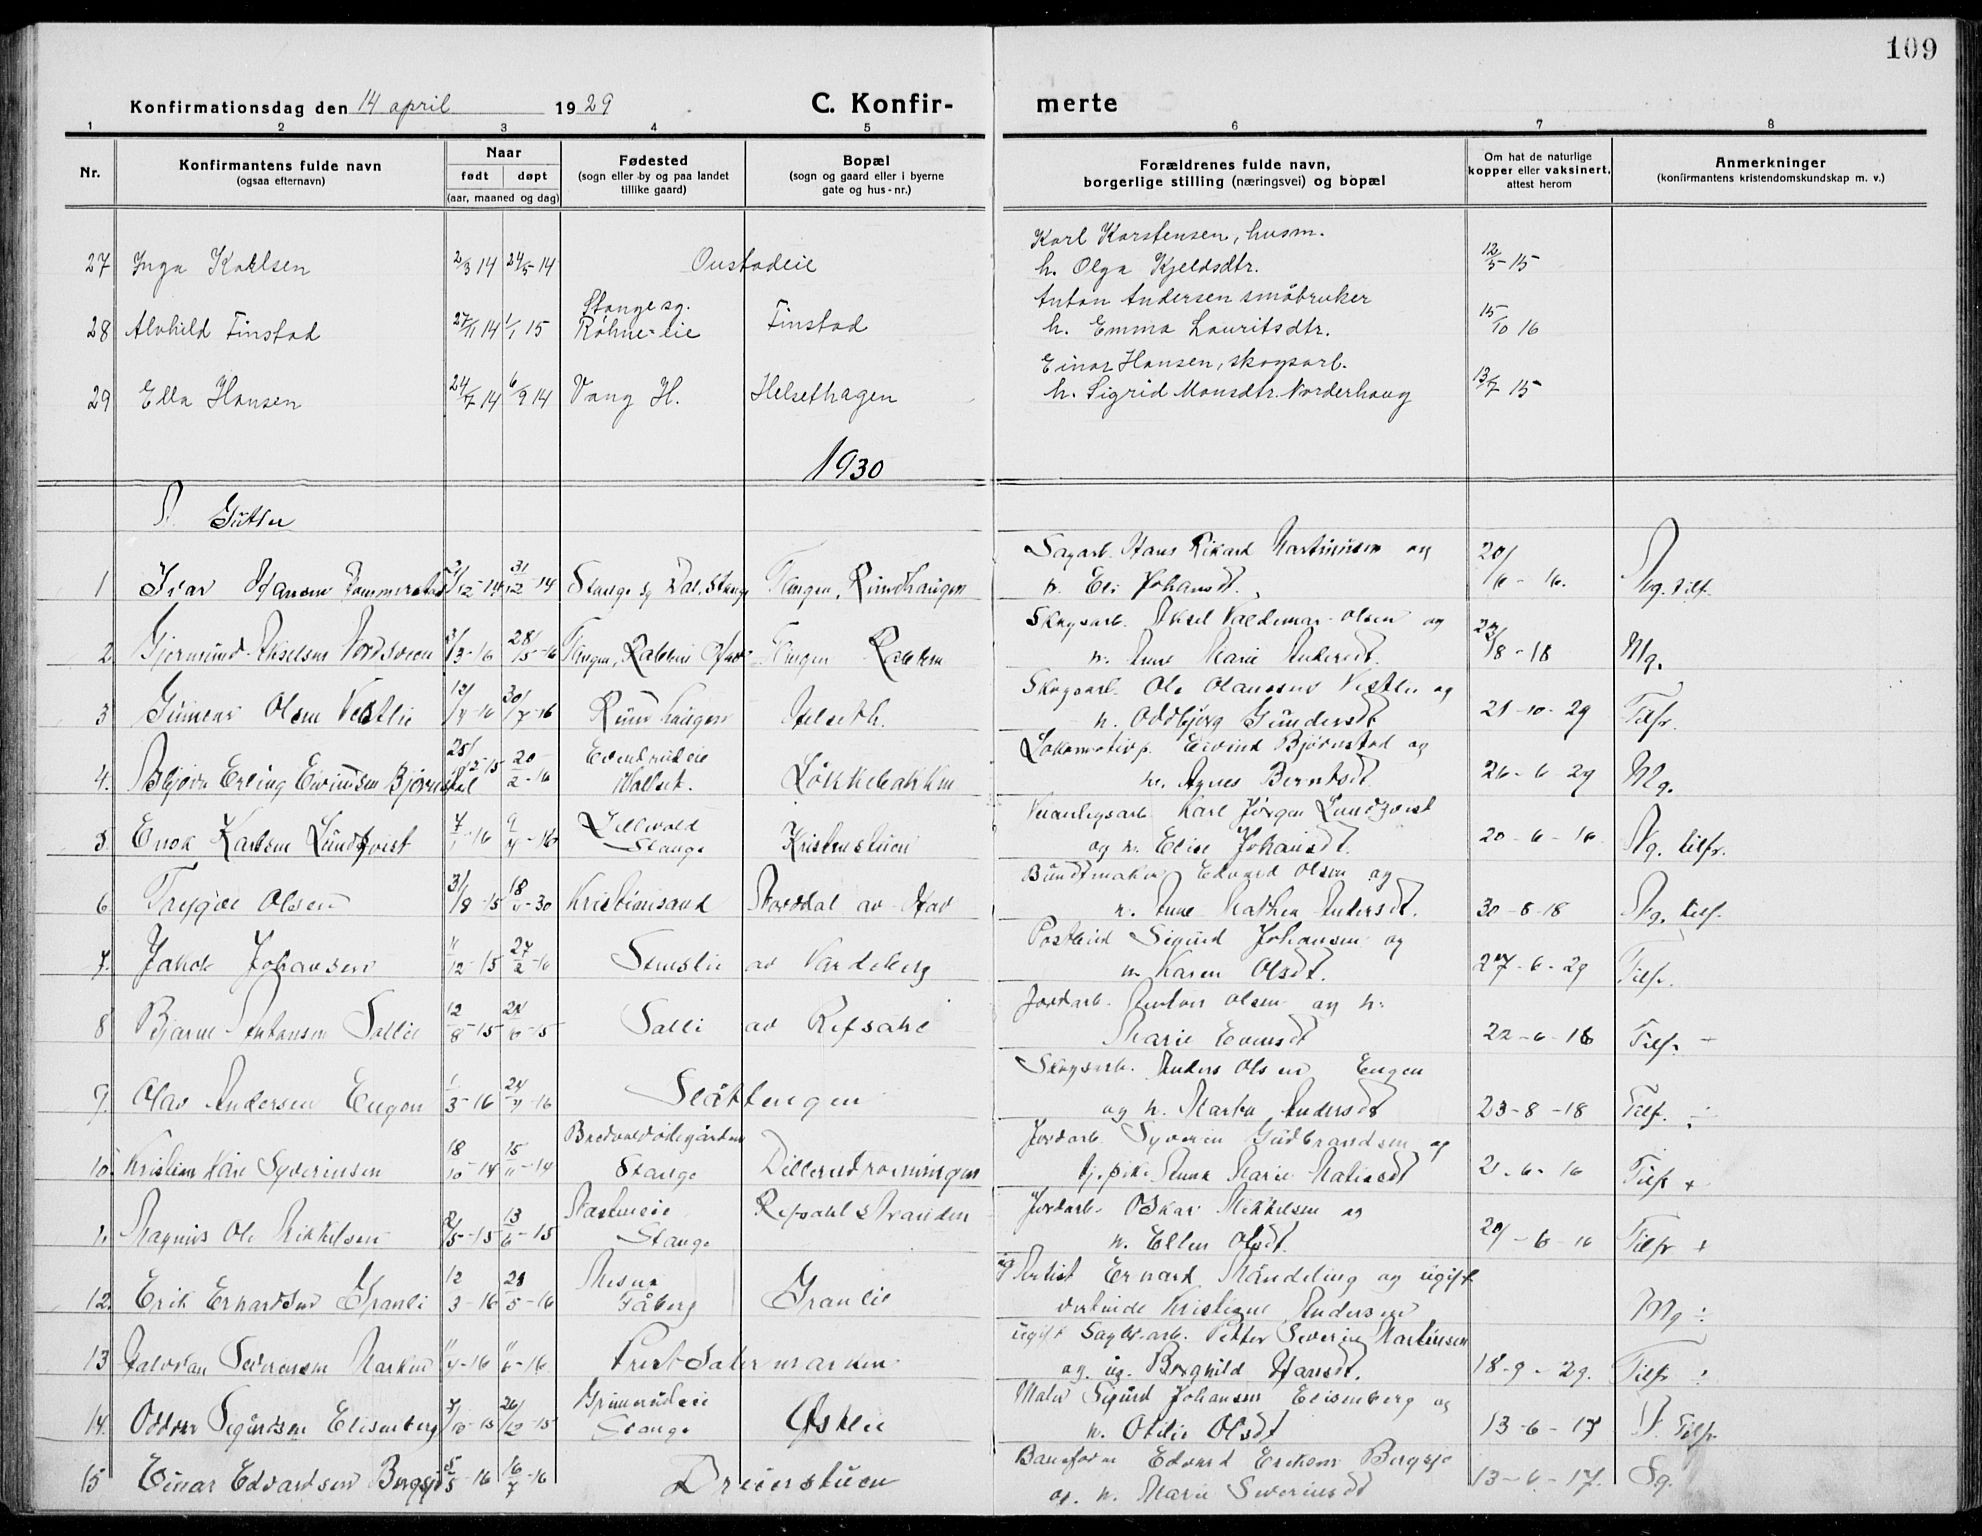 109
Konfirmationsdag den 14 april 1929 C. Konfir- merte
1 2 3 4 5 6 7 8
Nr.
Konfirmantens fulde navn
(ogsaa efternavn)
Naar
født døpt
(aar, maaned og dag)
Fødested
(sogn eller by og paa landet
tillike gaard)
Bopæl
(sogn og gaard eller i byerne
gate og hus-nr.)
Forældrenes fulde navn,
borgerlige stilling (næringsvei) og bopæl
Om hat de naturlige
kopper eller vaksinert,
attest herom
Anmerkninger
(konfirmantens kristendomskundskap m. v.)
Karl Karstensen, husm.
27 Inga Karlsen 2/3 14 24/5-14 Oustadeie h. Olga Kjeldsdtr. 12/5-15
Stange sg. Anton Andersen småbruker
28 Alvhild Finstad 27/11 14 1/1 15 Røhne-eie Finstad h. Emma Lauritsdtr. 15/10 16
Einar Hansen, skogsarb.
29 Ella Hansen 24/7 14 6/9 14 Vang H. Helsethagen h. Sigrid Monsdtr. Norderhaug 13/7 15
1930
Gutter
Sagarb. Hans Rikard Martinusen og
1 Ivar Hansen 31/12-14 Stange sg Tangen, Rundhaugen h. Eli Johansd. 20/6-16. Ng. tilf.
Skogsarb. Aksel Valdemar Olsen og
2 Gjermund Akselsen Nordsveen 3/3-16 28/5-16 Tangen, Tangen h. Anne Marie Andersdt. 23/8-18 Mg.
Skogsarb. Ole Olaussen Vestlie og
3 Gunnar Olsen Vestlie 12/4-16 30/7-16 Rundhaugen Helseth. h. Oddbjørg Gundersdt 21-10-29 Tilfr.
Lokomotivp. Eivind Bjørnstad og
4. Asbjørn Erling Eivindsen Bjørnstad 25/12-15 20/2-16 h. Agnes Berntsdt 26-6-29 Mg.
Karl Jørgen Lundqvist
5. Enok Karlsen Lundqvist 7/1-16 9/4-16 Lillevold Stange Kristenstuen og h. Elise Johansdt. 20-6-16 Ng. tilfr.
Buntmaker Edvard Olsen og
6 Trygve Olsen 31/8-15 18/4-30 Kristiansand h. Anne Mathea Andersdt. 30-8-18 Ng. tilf.
Postbud Sigurd Johansen og
7. Jakob Johansen 11/12-15 27/2-16 Stenslie av Vardeberg h. Karen Olsdt. 27-6-29 Tilfr.
Jordarb. Anton Olsen og h.
8 Bjarne Antonsen Sollie 12/8-15 Solli av Refsahl Marie Evensdt 22-6-16 Tilfr. -
Skogsarb. Anders Olsen Engen
9. Olav Andersen Engen 1/3-16 24/4-16 Slåttengen og h. Marta Andersdt 23-8-18 Tilf.
Bredvoldødegården Jordarb. Syverin Gudbrandsen og
10. Kristian Kåre Syverinsen 18/10-14 15/11-14 Stange Dillerudroeningen Anna Marie 21-6-16 Tilfr +
Refsahlstranden Jordarb. Oskar Mikkelsen og
11. Magnus Ole Mikkelsen 2/5-15 13/6-15 Stange h. Ellen Olsdt. 20/-6-16 Tilfr +
ug Artist Ernard Mandeling og ugift
12. Erik Ernardsen Granli 12/3-16 28/5-16 Mesna Fåberg Granlie Kristiane Andersen Mg ÷
ugift Sagbr.arb. Petter Severin Martinsen
13 Halvdan Severinsen Marken "/4-16 "/6-16. Prestsætermarken og ug. Borghild Hansdt. 18-9-29. Tilfr
Grimerudeie Maler Sigurd Johansen Elisenberg og
14. Oddvar Sigurdsen Elisenberg 7/10-15 26/12-15 Stange Østlie h. Otilie Olsdt 13-6-17 Tilfr
Baneform Edvard Eriksen Bergsjø
15 Einar Edvardsen Bergsjø 5/5-16 16/7-16 Dreierstuen og h. Marie Severinsdt 13-6-17. Sg.